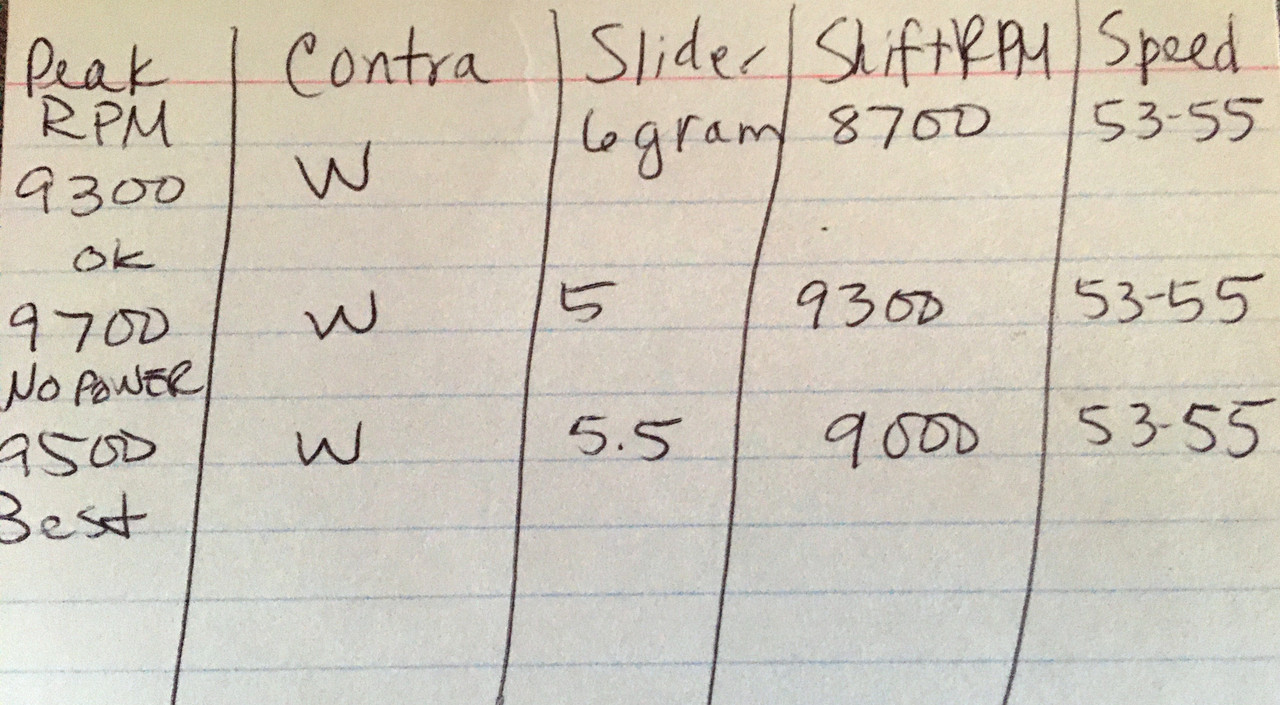 Peak Contra Slider ShiftRPM Speed
RPM 6 gram 8700 53-55
9300 W
OK
9700 W 5 9300 53-55
NO POWER
9500 W 5.5 9000 53-55
Best